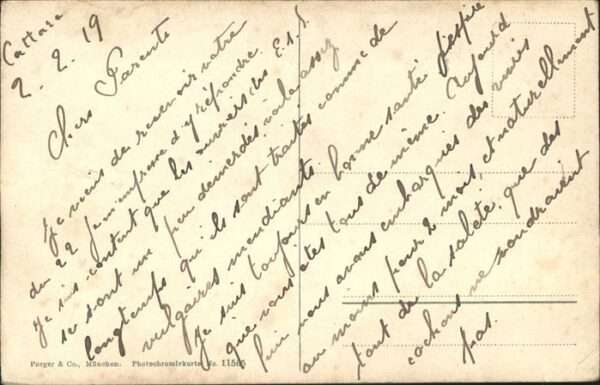 Cattaro
2.2.19
Chers Parents
Je viens de recevoir votre
du 22 je m'empresse d'y répondre.
Je suis content que les ouvriers des E.S.
se sont un peu demerdés, voila assez
longtemps qu'ils sont traites comme de
vulgaires mendiants.
Je suis toujours en bonne santé j'espère
que vous êtes tous de même. Aujourd
hui nous avons embarqués des vivres
au moins pour 2 mois, et naturellement
tout de la saleté, que des
cochons ne voudraient
pas.
Purger & Co., München. Photochromiekarte No. 11565